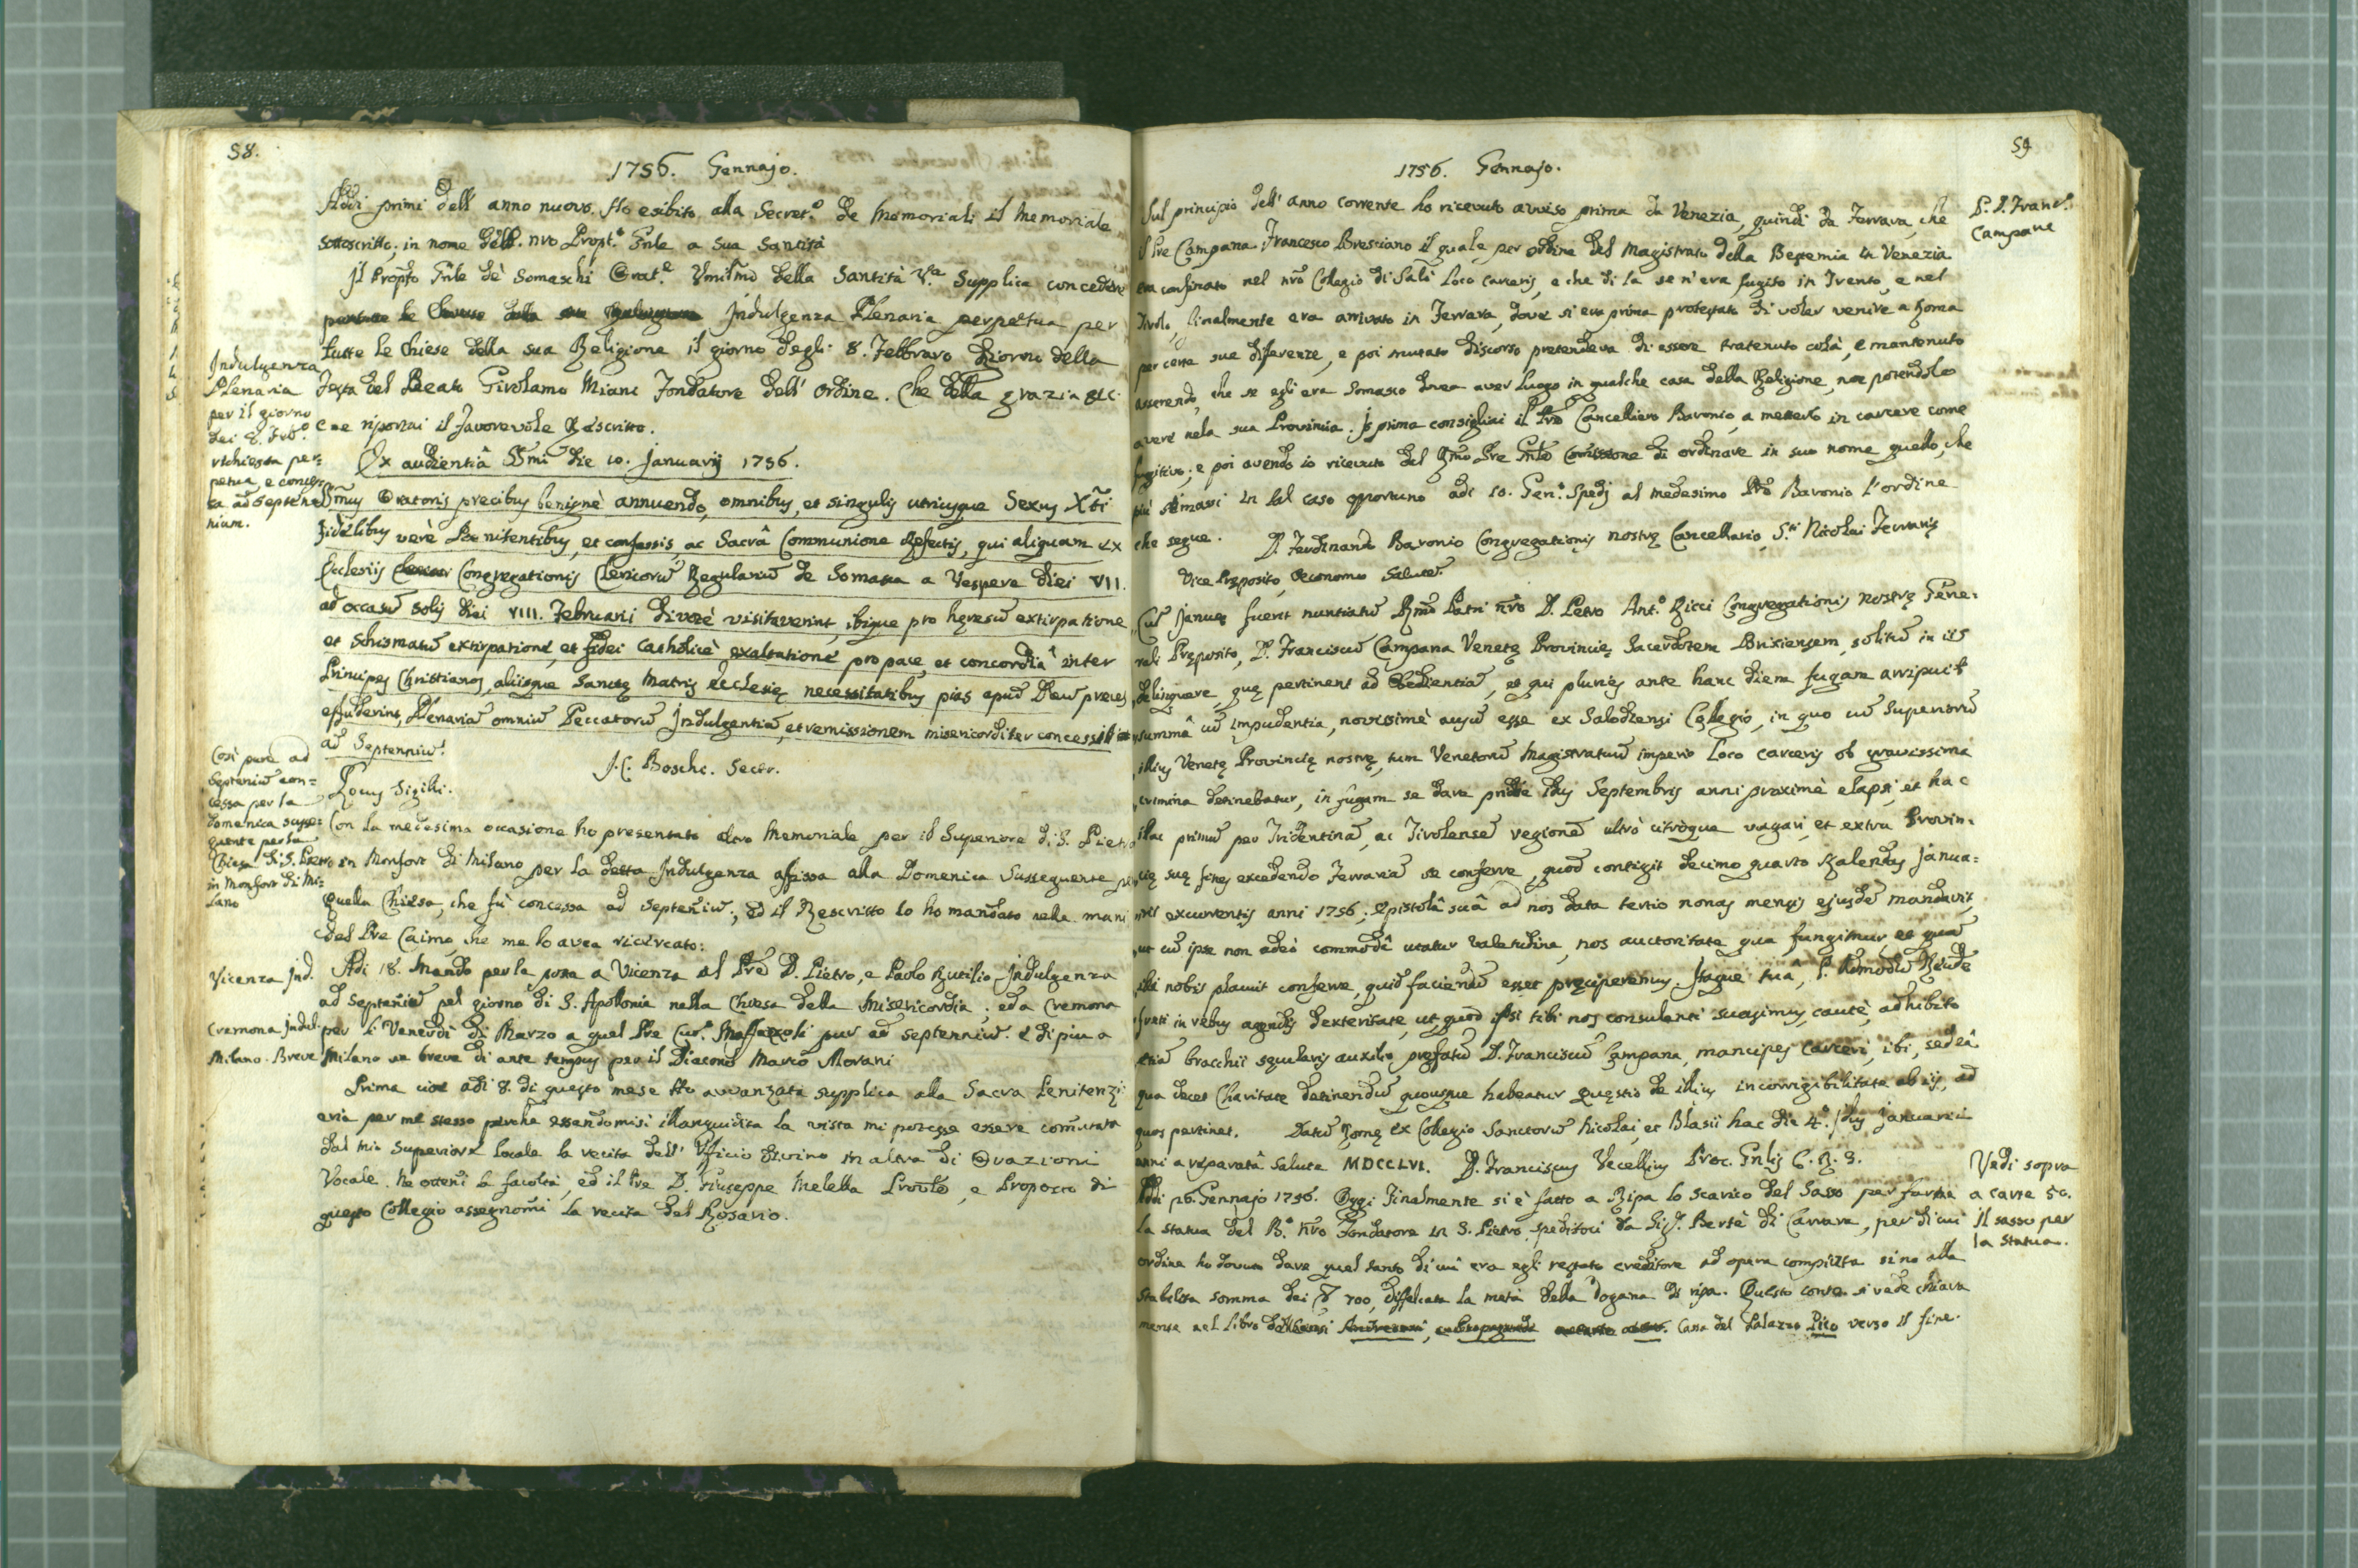 58.
1756. Gennajo.
Addi primi dell anno nuovo. Ho esibito alla Secret.ᵃ de Memoriali il Memoriale
sottoscritto, in nome del P. nro Propt.º Gnle a sua Santità
Il Propto Gnle de Somaschi Orat.ᵉ Umilmo della Santità V.ᵃ Supplica concedere
Indulgenza Plenaria perpetua per
tutte le Chiese della sua Religione il giorno degli 8. Febbraro Giorno della
Festa del Beato Girolamo Miani Fondatore dell' Ordine. Che della grazia etc.
e ne riportai il favorevole Rescritto.
Indulgenza
Plenaria
per il giorno
dei 8. Febº
richiesta per:
petua, e conces
sa ad Septen
nium.
Ex audientiâ SSmi die 10. Januarij 1756.
SSmus Oratoris precibus benignè annuendo, omnibus, et singulis utriusque Sexus Xti
fidelibus verè Penitentibus, et confessis, ac Sacrâ Communione refectis, qui aliquam ex
Ecclesiis Congregationis Clericorū Regulariū de Somasca a Vespere diei VII.
ad occasū solis diei VIII. Februarii divotè visitaverint, ibique pro hęresū extirpatione
et schismatū extirpatione, et fidei Catholicè exaltatione pro pace, et concordiâ inter
Principes Christianos, aliisque Sanctę Matris Ecclesię necessitatibus pias apud Deū preces
effuderint, Plenariā omniū Peccatorū Indulgentiā, et remissionem misericorditer concessit
ad Septenniū.
J. C. Boschi. Secr.
Locus Sigilli.
Così pure ad
Septeniū con=
cessa per la
domenica susse:
guente per la
Chiesa di S. Pietro
in Monfort di Mi:
lano
Con la medesima occasione ho presentato altro Memoriale per il Superiore di S. Pietro
in Monfort di Milano per la detta Indulgenza affissa alla Domenica Sussequente per
quella Chiesa, che fù concessa ad Septeniū; ed il Rescritto lo ho mandato nella mani
del Pre Caimo, che me lo avea ricercato:
Vicenza Ind.
Adi 18. Mando per la posta a Vicenza al Pre D. Pietro, e Paolo Rutilio Indulgenza
ad Septeniū pel giorno di S. Apollonia nella Chiesa della Misericordia; ed a Cremona
Cremona Indul.
per li Venerdì di Marzo a quel Pre Curº Maffezzoli pur ad Septenniū. e di piu a
Milano. Breve
Milano un breve di ante tempus per il Diacono Marco Morani
Prima cioè adi 8. di questo mese Ho avvanzata supplica alla Sacra Penitenzi:
eria per me stesso perche essendomisi illanguidita la vista mi potesse essere comutata
dal mio Superiore locale la recita dell' Ufficio divino in altra di Orazioni
Vocale. Ne ottenni la facoltà, ed il Pre D. Giuseppe Melella Provle, e Proposto di
questo Collegio assegnomi la recita del Rosario.
59
1756. Gennajo.
P. D. Francº
Campana
Sul principio dell' anno corrente ho ricevuto avviso prima da Venezia, quindi da Ferrara, che
il Pre Campana Francesco Bresciano il quale per ordine del Magistrato della Bestemia in Venezia
era confinato nel nrō Colegio di Salò Loco Carceris, e che di la se n'era fugito in Trento, e nel
Tirolo, finalmente era arrivato in Ferrara, dove si era prima protestato di voler venire a Roma
per certe sue diferenze, e poi mutato discorso pretendeva di essere tratenuto colà, e mantenuto
asserendo, che se egli era Somasco dovea aver luogo in qualche casa della Religione, non potendolo
avere nela sua Provincia. Io prima consigliai il Pre Cancelliero Baronio, a metterlo in carcere come
fugitivo; e poi avendo io ricevuto dal Rmo Pre Gnle Comissione di ordinare in suo nome quello, che
più stimassi in tal caso opportuno adi 10. Genº Spedj al medesimo Pre Baronio l'ordine
che segue.
D. Ferdinando Baronio Congregationis nostrę Cancellario, Sti Nicolai Ferrarię
Vice Pręposito, Oeconomo Salutē.
Cū Januę fuerit nuntiatū Rmō Patri nrō D. Petro Antº Ricci Congregationis nostrę Gene:
rali Pręposito, D. Franciscū Campana Venetę Provincię Sacerdotem Brixiensem, solitū in iis
delinquere, quę pertinent ad Obedientiā, et qui pluries ante hanc diem fugam arripuit
summâ cū impudentia, novissimè ausū esse ex Salodiensi Collegio, in quo cū Superiorū
illius Venetę Provincię nostrę, tum Venetorū Magistratuū imperio Loco Carceris ob gravissima
crimina detinebatur, in fugam se dare pridie Idus Septembris anni proximè elapsi, et hac
illac primū per Tridentinā, ac Tirolensē regionē ultrò citròque vagari, et extra Provin:
cię suę fines excedendo Ferrariā se conferre, quod contigit decimo quarto Kalendas Janua:
rii excurrentis anni 1756; Epistolâ suâ ad nos data tertio nonas mensis ejusdē mandavit,
ut cū ipse non adeò commodâ utatur valetudine, nos auctoritate qua fungimur, et quā
ibi nobis placuit conferre, quid faciendū esset pręciperemus. Itaque tuâ, P.
in rebus agendis dexteritate, ut, quod ipsi tibi nos consulenti suasimus, cautè, adhibito
etiā bracchii sęcularis auxilio, pręfatū D. Franciscū Campana, mancipes Carceri, ibi, sed eâ
qua decet Charitate detinendū quousque habeatur quęstio de illius incorrigibilitate ab iis, ad
quos pertinet. Datū Romę ex Collegio Sanctorū Nicolai, et Blasii hac die 4º. Idus Januarii
anni a reparatâ Salute MDCCLVI. D. Franciscus Vecellius Proc. Gnlis C. R. S.
Vedi sopra
a carte 50.
Il sasso per
la Statua.
Addi 26. Gennajo 1756. Oggi finalmente si è fatto a Ripa lo scarico del Sasso per farne
la statua del B.º nrō Fondatore in S. Pietro speditoci da Sigr. Bertè di Carrara, per di cui
ordine ho dovuto dare quel tanto di cui era egli restato creditore ad opera compiuta sino alla
stabilita somma dei 700, diffalcata la metà della dogana di ripa. Questo conto si vede chiara
mente nel Libro Casa del Palazzo Pico verso il fine.